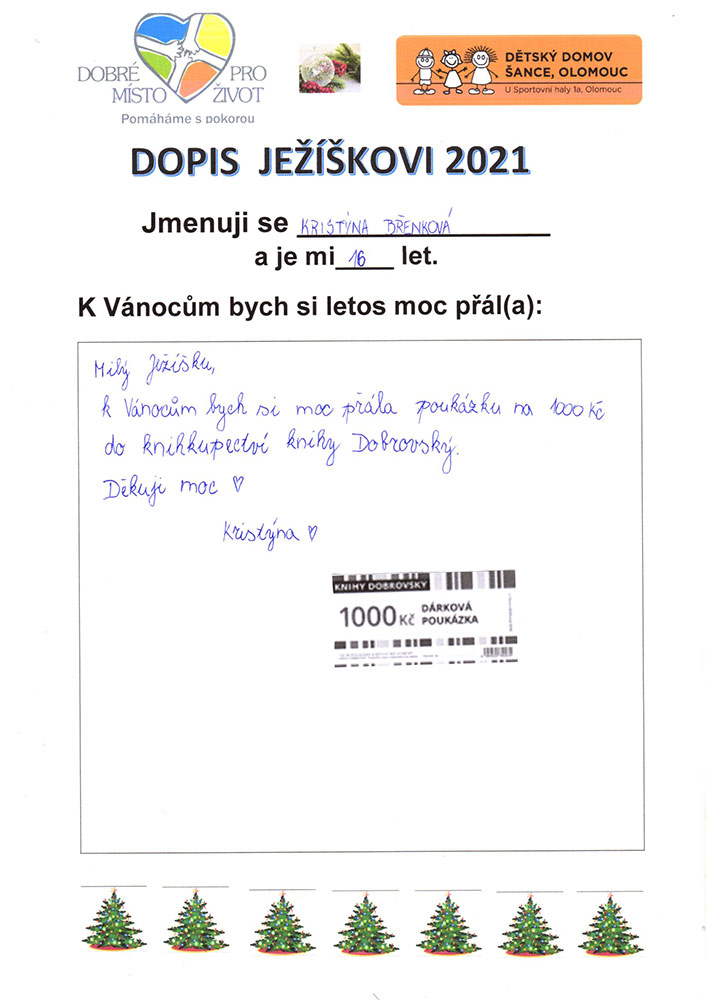 DOBRÉ PRO
MÍSTO ŽIVOT
Pomáháme s pokorou
DĚTSKÝ DOMOV
ŠANCE, OLOMOUC
U Sportovní haly 1a, Olomouc
DOPIS JEŽÍŠKOVI 2021
Jmenuji se KRISTÝNA BŘENKOVÁ
a je mi 16 let.
K Vánocům bych si letos moc přál(a):
Milý Ježíšku,
k Vánocům bych si moc přála poukázku na 1000 Kč
do knihkupectví knihy Dobrovský.
Děkuji moc ♡
Kristýna ♡
KNIHY DOBROVSKÝ
1000 Kč DÁRKOVÁ
POUKÁZKA